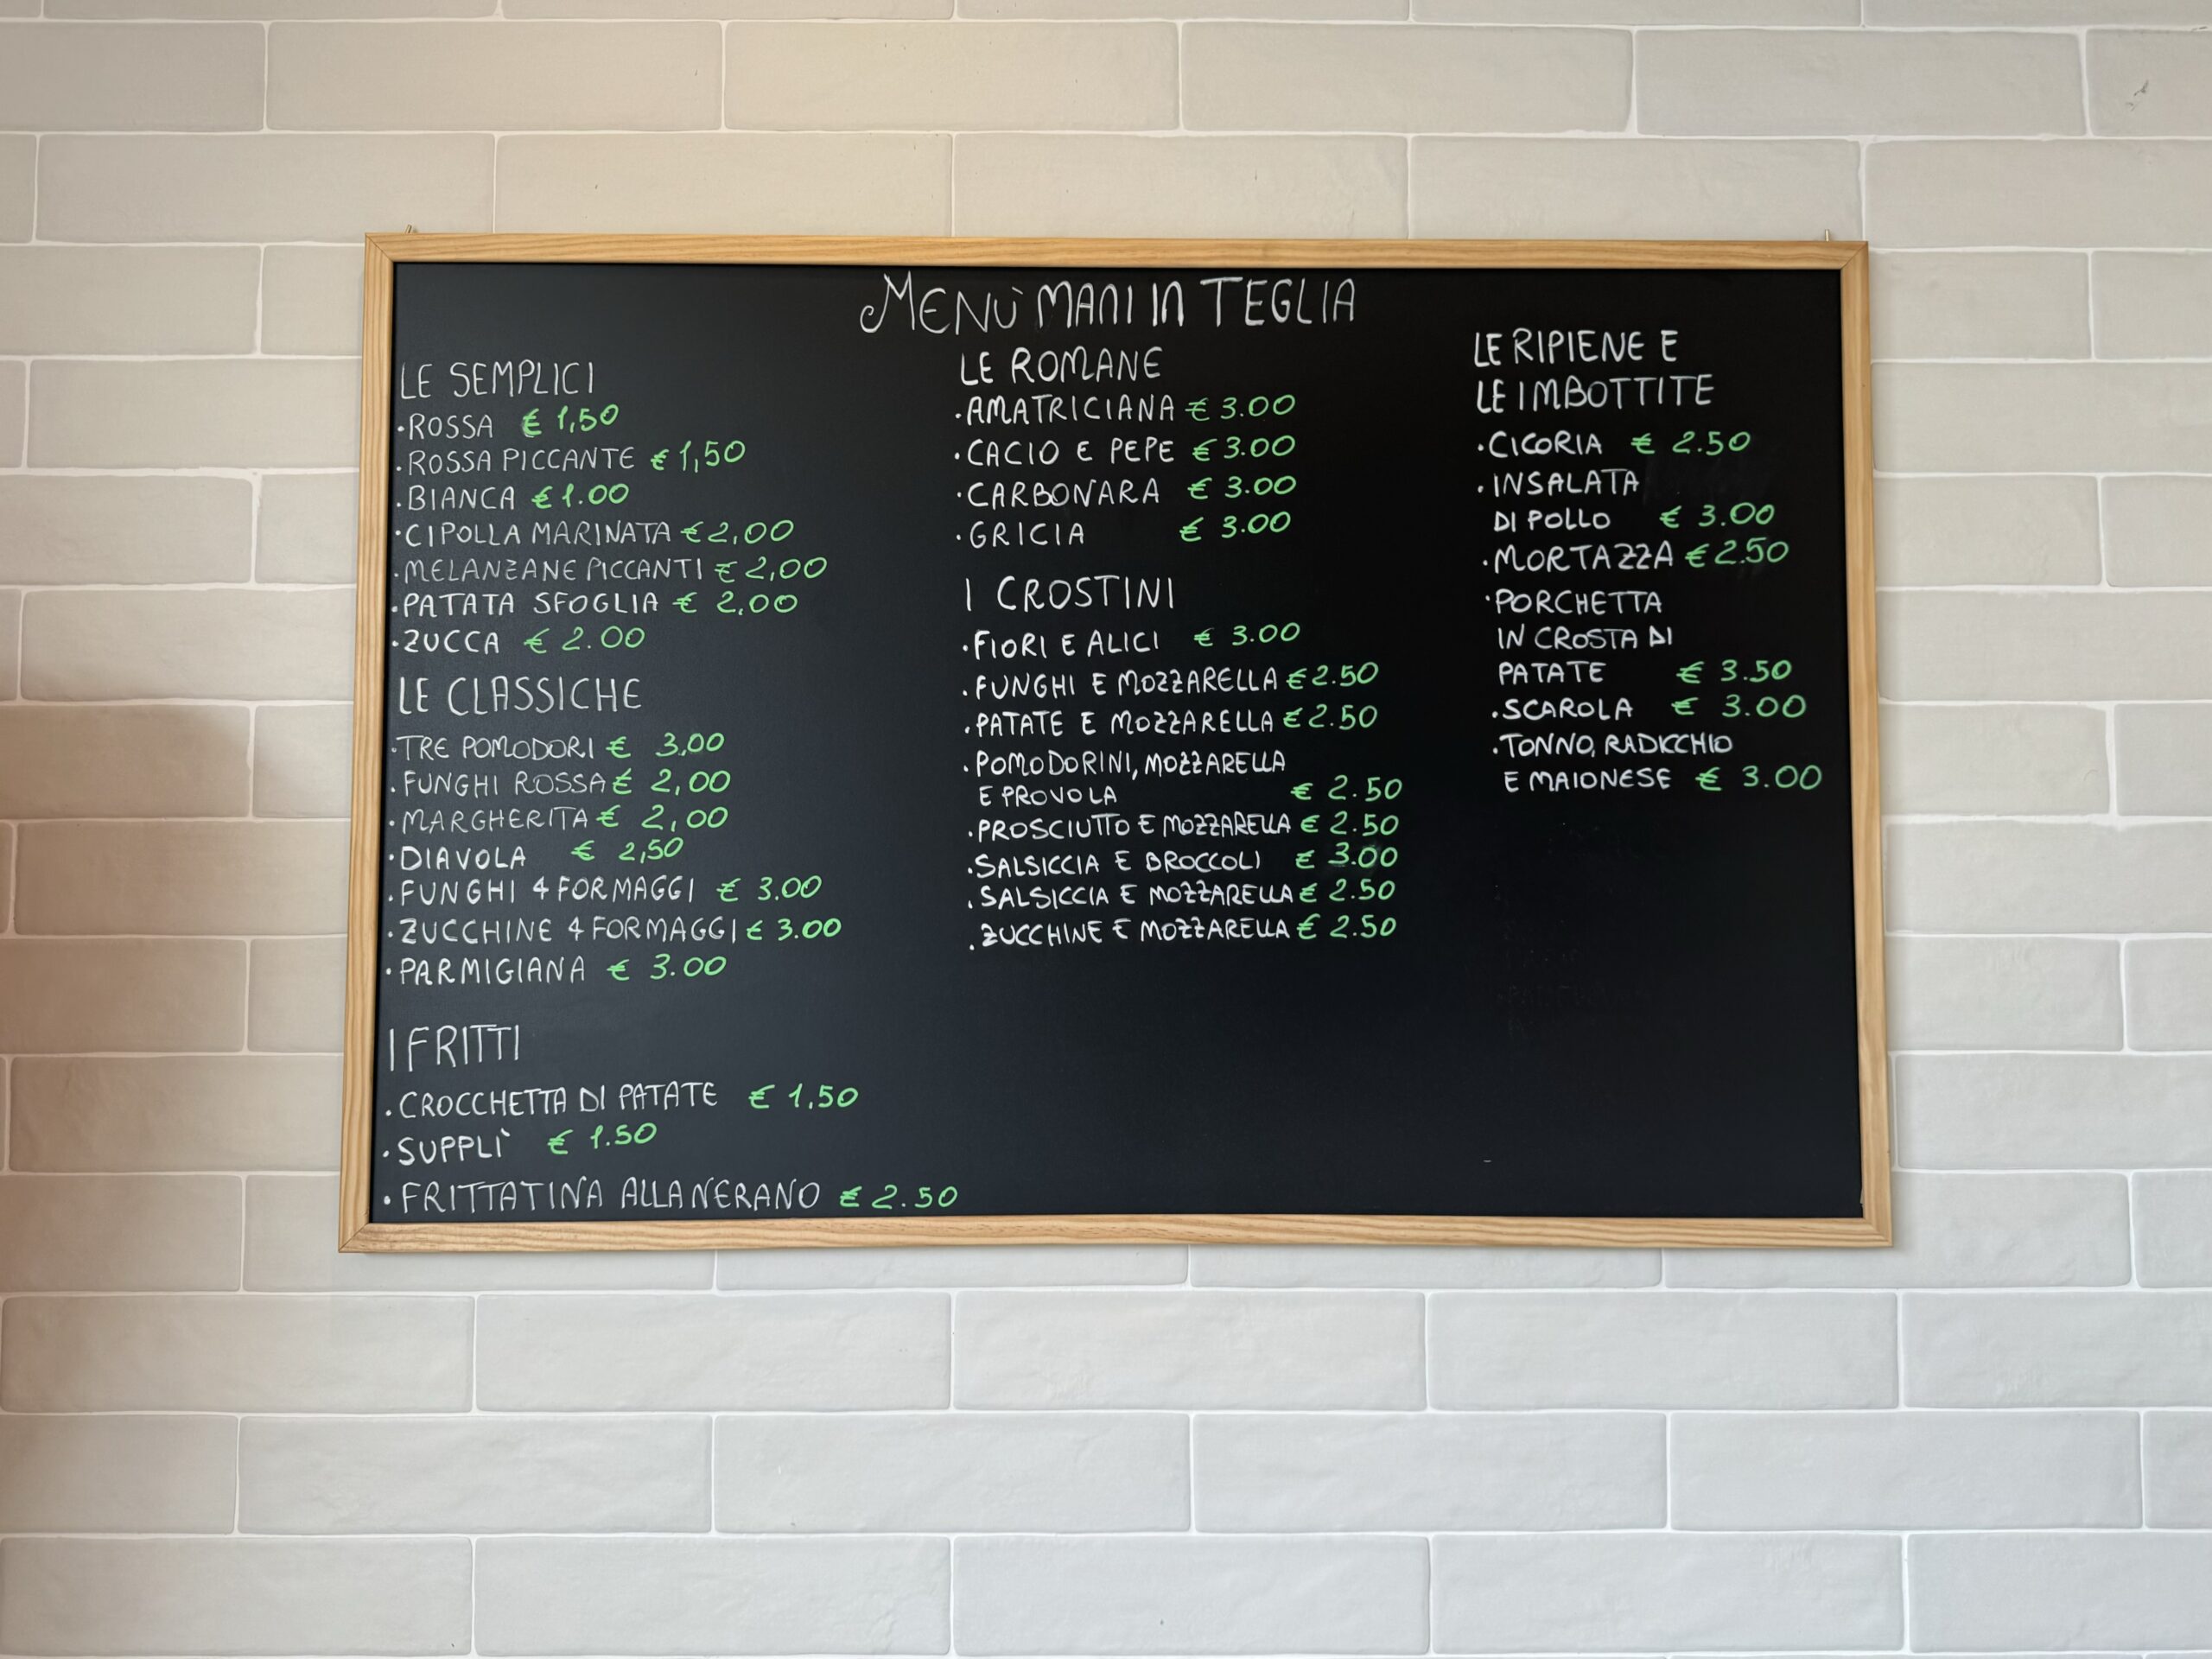 MENÙ MANI IN TEGLIA
LE SEMPLICI
·ROSSA € 1,50
·ROSSA PICCANTE € 1,50
·BIANCA € 1.00
·CIPOLLA MARINATA € 2,00
·MELANZANE PICCANTI € 2,00
·PATATA SFOGLIA € 2.00
·ZUCCA € 2.00
LE CLASSICHE
·TRE POMODORI € 3,00
·FUNGHI ROSSA € 2,00
·MARGHERITA € 2,00
·DIAVOLA € 2,50
·FUNGHI 4 FORMAGGI € 3.00
·ZUCCHINE 4 FORMAGGI € 3.00
·PARMIGIANA € 3.00
I FRITTI
·CROCCHETTA DI PATATE € 1,50
·SUPPLÌ € 1.50
·FRITTATINA ALLA NERANO € 2.50
LE ROMANE
·AMATRICIANA € 3.00
·CACIO E PEPE € 3.00
·CARBONARA € 3.00
·GRICIA € 3.00
I CROSTINI
·FIORI E ALICI € 3.00
·FUNGHI E MOZZARELLA € 2.50
·PATATE E MOZZARELLA € 2.50
·POMODORINI, MOZZARELLA
E PROVOLA € 2.50
·PROSCIUTTO E MOZZARELLA € 2.50
·SALSICCIA E BROCCOLI € 3.00
·SALSICCIA E MOZZARELLA € 2.50
·ZUCCHINE E MOZZARELLA € 2.50
LE RIPIENE E
LE IMBOTTITE
·CICORIA € 2.50
·INSALATA
DI POLLO € 3.00
·MORTAZZA € 2.50
·PORCHETTA
IN CROSTA DI
PATATE € 3.50
·SCAROLA € 3.00
·TONNO, RADICCHIO
E MAIONESE € 3.00